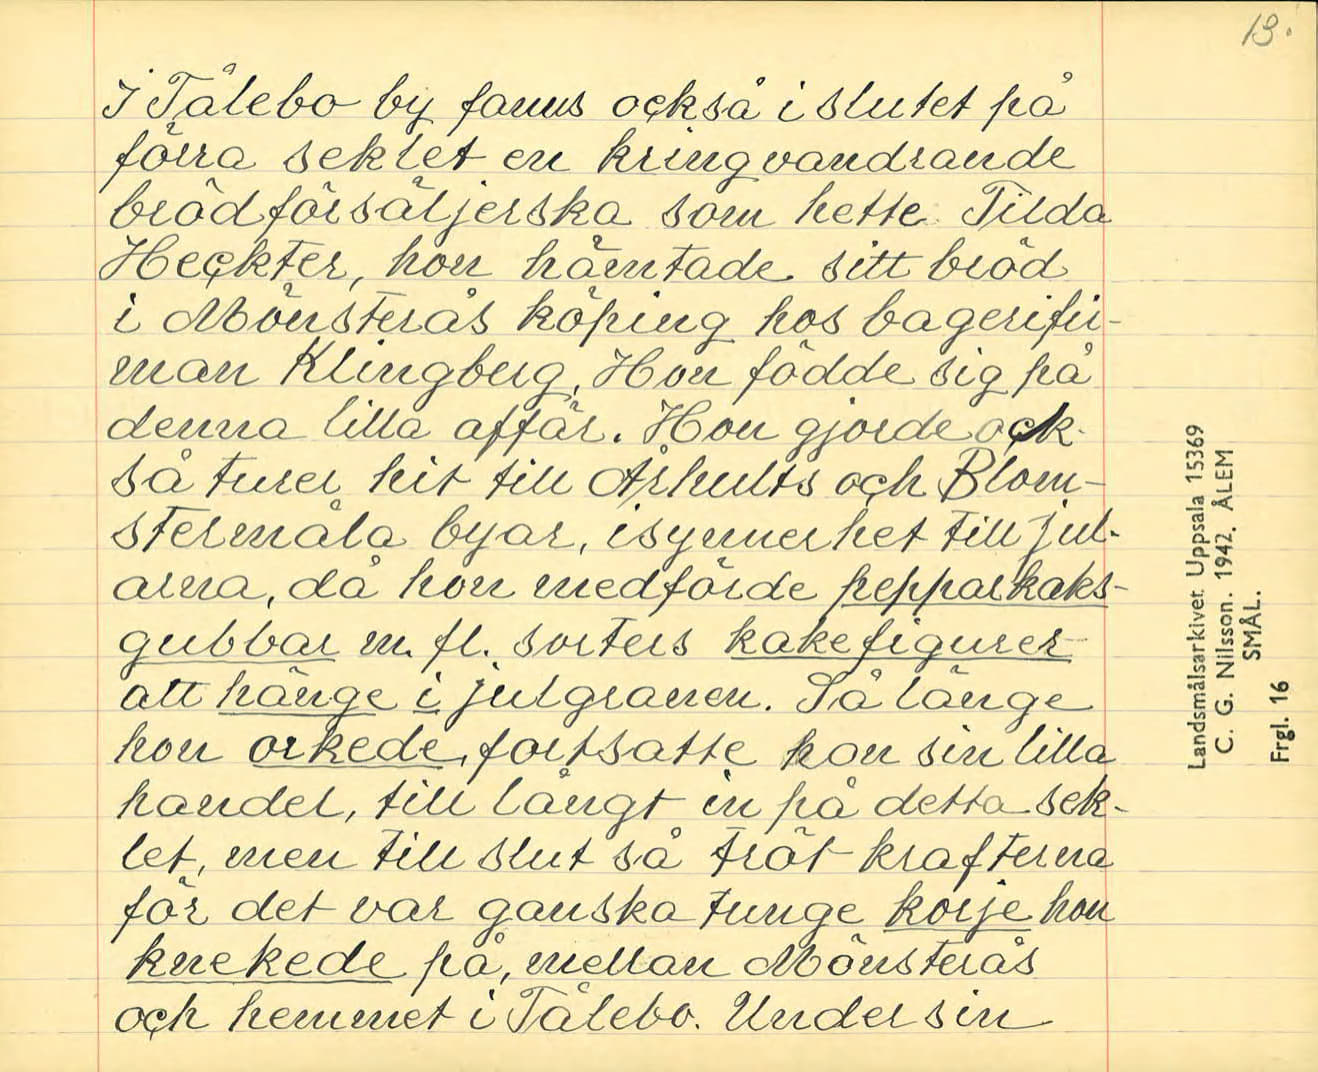 13.
I Tålebo by fanns också i slutet på
förra seklet en kringvandrande
brödförsäljerska som hette Tilda
Heckter, hon hämtade sitt bröd
i Mönsterås köping hos bagerifir-
man Klingberg. Hon födde sig på
denna lilla affär. Hon gjorde ock-
så turer hit till Århults och Blom-
stermåla byar, isynnerhet till jul-
arna, då hon medförde pepparkaks-
gubbar m. fl. sorters kakefigurer
att hänge i julgranen. Så länge
hon orkede, fortsatte hon sin lilla
handel, till långt in på detta sek-
let, men till slut så tröt krafterna
för det var ganska tunge korje hon
knekede på, mellan Mönsterås
och hemmet i Tålebo. Under sin
Landsmålsarkivet Uppsala 15369
C. G. Nilsson. 1942. ÅLEM
SMÅL.
Frgl. 16